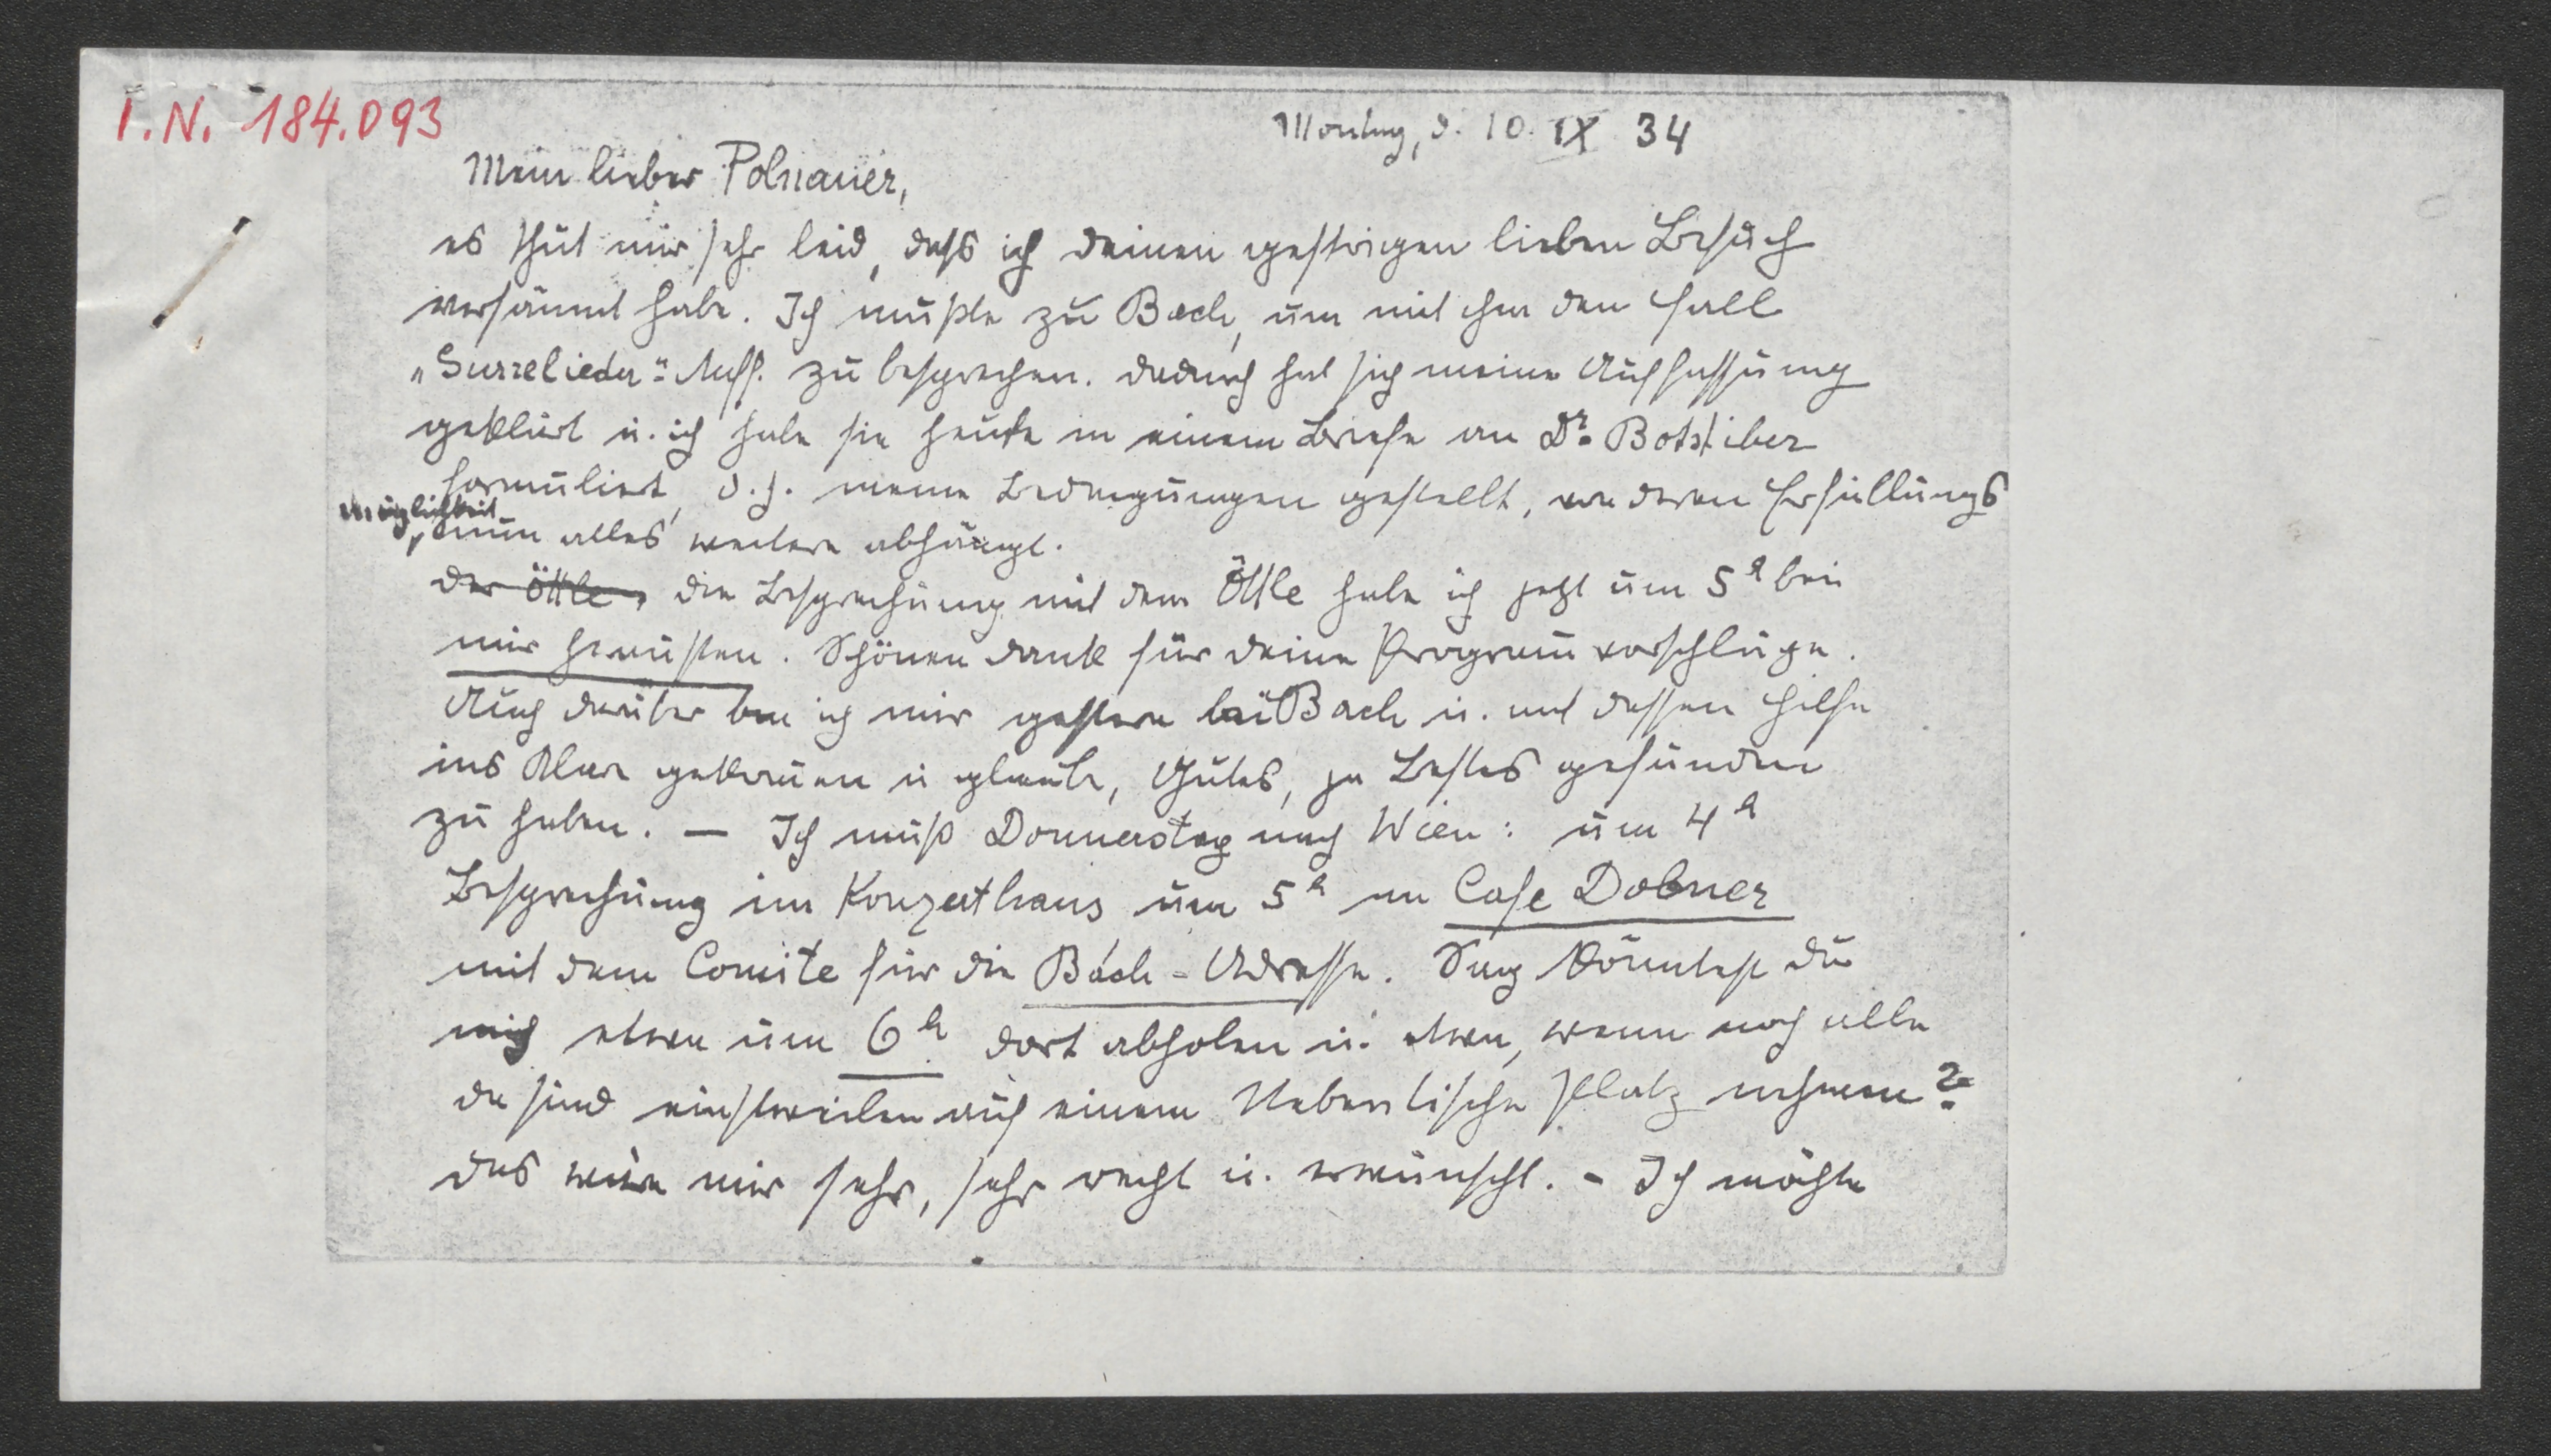 I.N. 184.093
Montag, d. 10. IX 34
Mein lieber Polnauer,
es thut mir sehr leid, dass ich deinen gestrigen lieben Besuch
versäumt habe. Ich mußte zu Bach, um mit ihm den Fall
„Gurrelieder“ Auff. zu besprechen. Dadurch hat sich meine Auffassung
geklärt u. ich habe sie heute in einem Briefe an Dr. Botstiber
formuliert, d.h. meine Bedingungen gestellt, von deren Erfüllungs
möglichkeit
nun alles weitere abhängt.
Der Öttle, Die Besprechung mit dem Öttle habe ich jetzt um 5h bei
mir heraußen. Schönen Dank für deine Programmvorschläge.
Auch darüber bin ich mir gestern bei Bach u. mit dessen Hilfe
ins Klare gekommen u glaube, Gutes, ja Bestes gefunden
zu haben. — Ich muß Donnerstag nach Wien: um 4h
Besprechung im Konzerthaus um 5h im Cafe Dobner
mit dem Comite für die Bach-Adresse. Sag könntest du
mich etwa um 6h dort abholen u. etwa, wenn noch alle
da sind einstweilen auf einem Nebentische Platz nehmen?
Das wäre mir sehr, sehr recht u. erwünscht. - Ich möchte